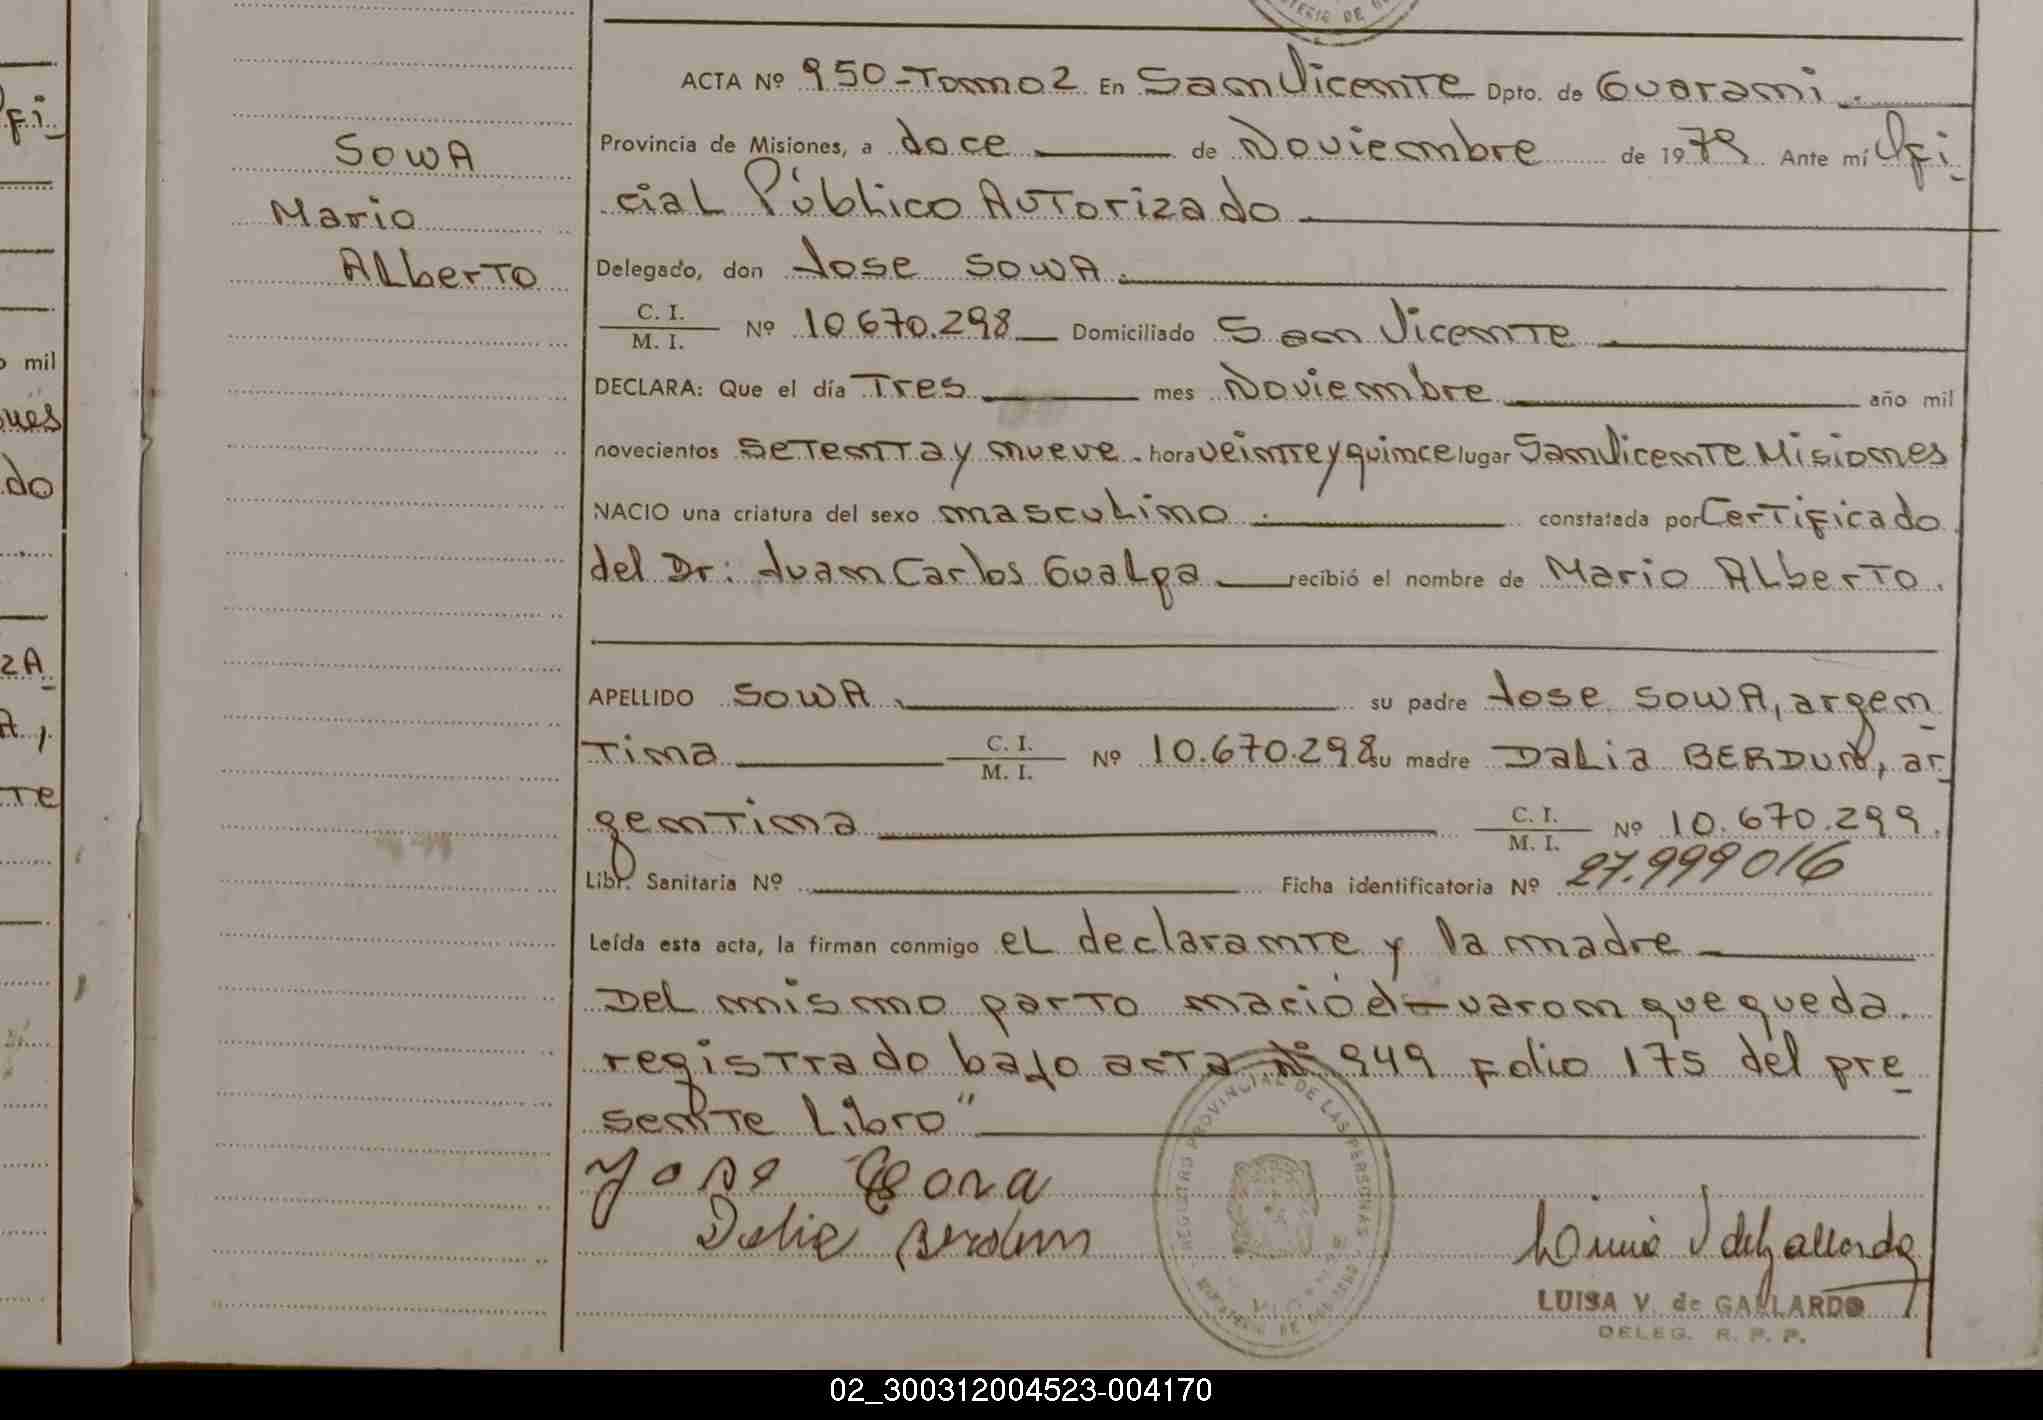 ACTA Nº 950-Tomo 2 En San Vicente Dpto. de Guarani
Provincia de Misiones, a doce de Noviembre de 1979 Ante mí Ofi
cial Público Autorizado
Delegado, don Jose SOWA.
C. I.
M. I. Nº 10.670.298 Domiciliado San Vicente
DECLARA: Que el día Tres mes Noviembre año mil
novecientos setenta y nueve. hora veinte y quince lugar San Vicente Misiones
NACIO una criatura del sexo masculino. constatada por Certificado
del Dr: Juan Carlos Gualpa recibió el nombre de Mario Alberto.
APELLIDO SOWA su padre Jose SOWA, argen
tina C. I.
M. I. Nº 10.670.298 su madre Dalia BERDUN, ar
gentina C. I.
M. I. Nº 10.670.299.
Libr. Sanitaria Nº Ficha identificatoria Nº 27.999016
Leída esta acta, la firman conmigo el declarante y la madre
Del mismo parto nació el varon que queda
registrado bajo acta Nº 949 Folio 175 del pre
sente Libro"
Jose Sova
Dalie Berdun
LUISA V. de GALLARDO
DELEG. R. P. P.
REGISTRO PROVINCIAL DE LAS PERSONAS
SOWA
Mario
Alberto
TERIO DE
fi
o mil
nes
do
ZA
A,
te
02_300312004523-004170